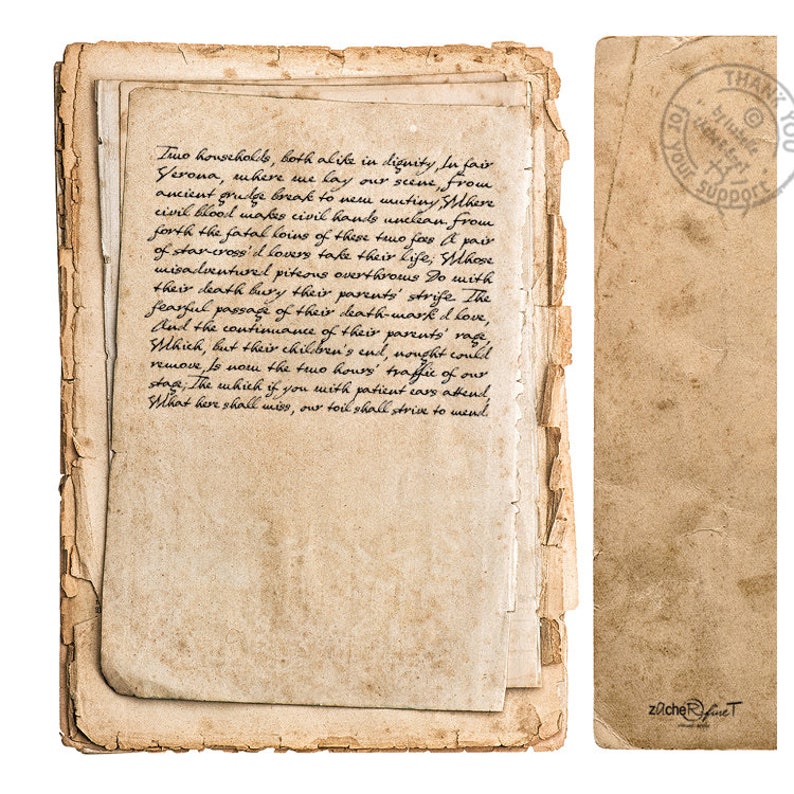 Two households, both alike in dignity, In fair
Verona, where we lay our scene, From
ancient grudge break to new mutiny, Where
civil blood makes civil hands unclean. From
forth the fatal loins of these two foes A pair
of star-cross'd lovers take their life; Whose
misadventured piteous overthrows Do with
their death bury their parents' strife. The
fearful passage of their death-mark'd love,
And the continuance of their parents' rage,
Which, but their children's end, nought could
remove, Is now the two hours' traffic of our
stage; The which if you with patient ears attend,
What here shall miss, our toil shall strive to mend.
THANK YOU
for your support
zacheRfineT